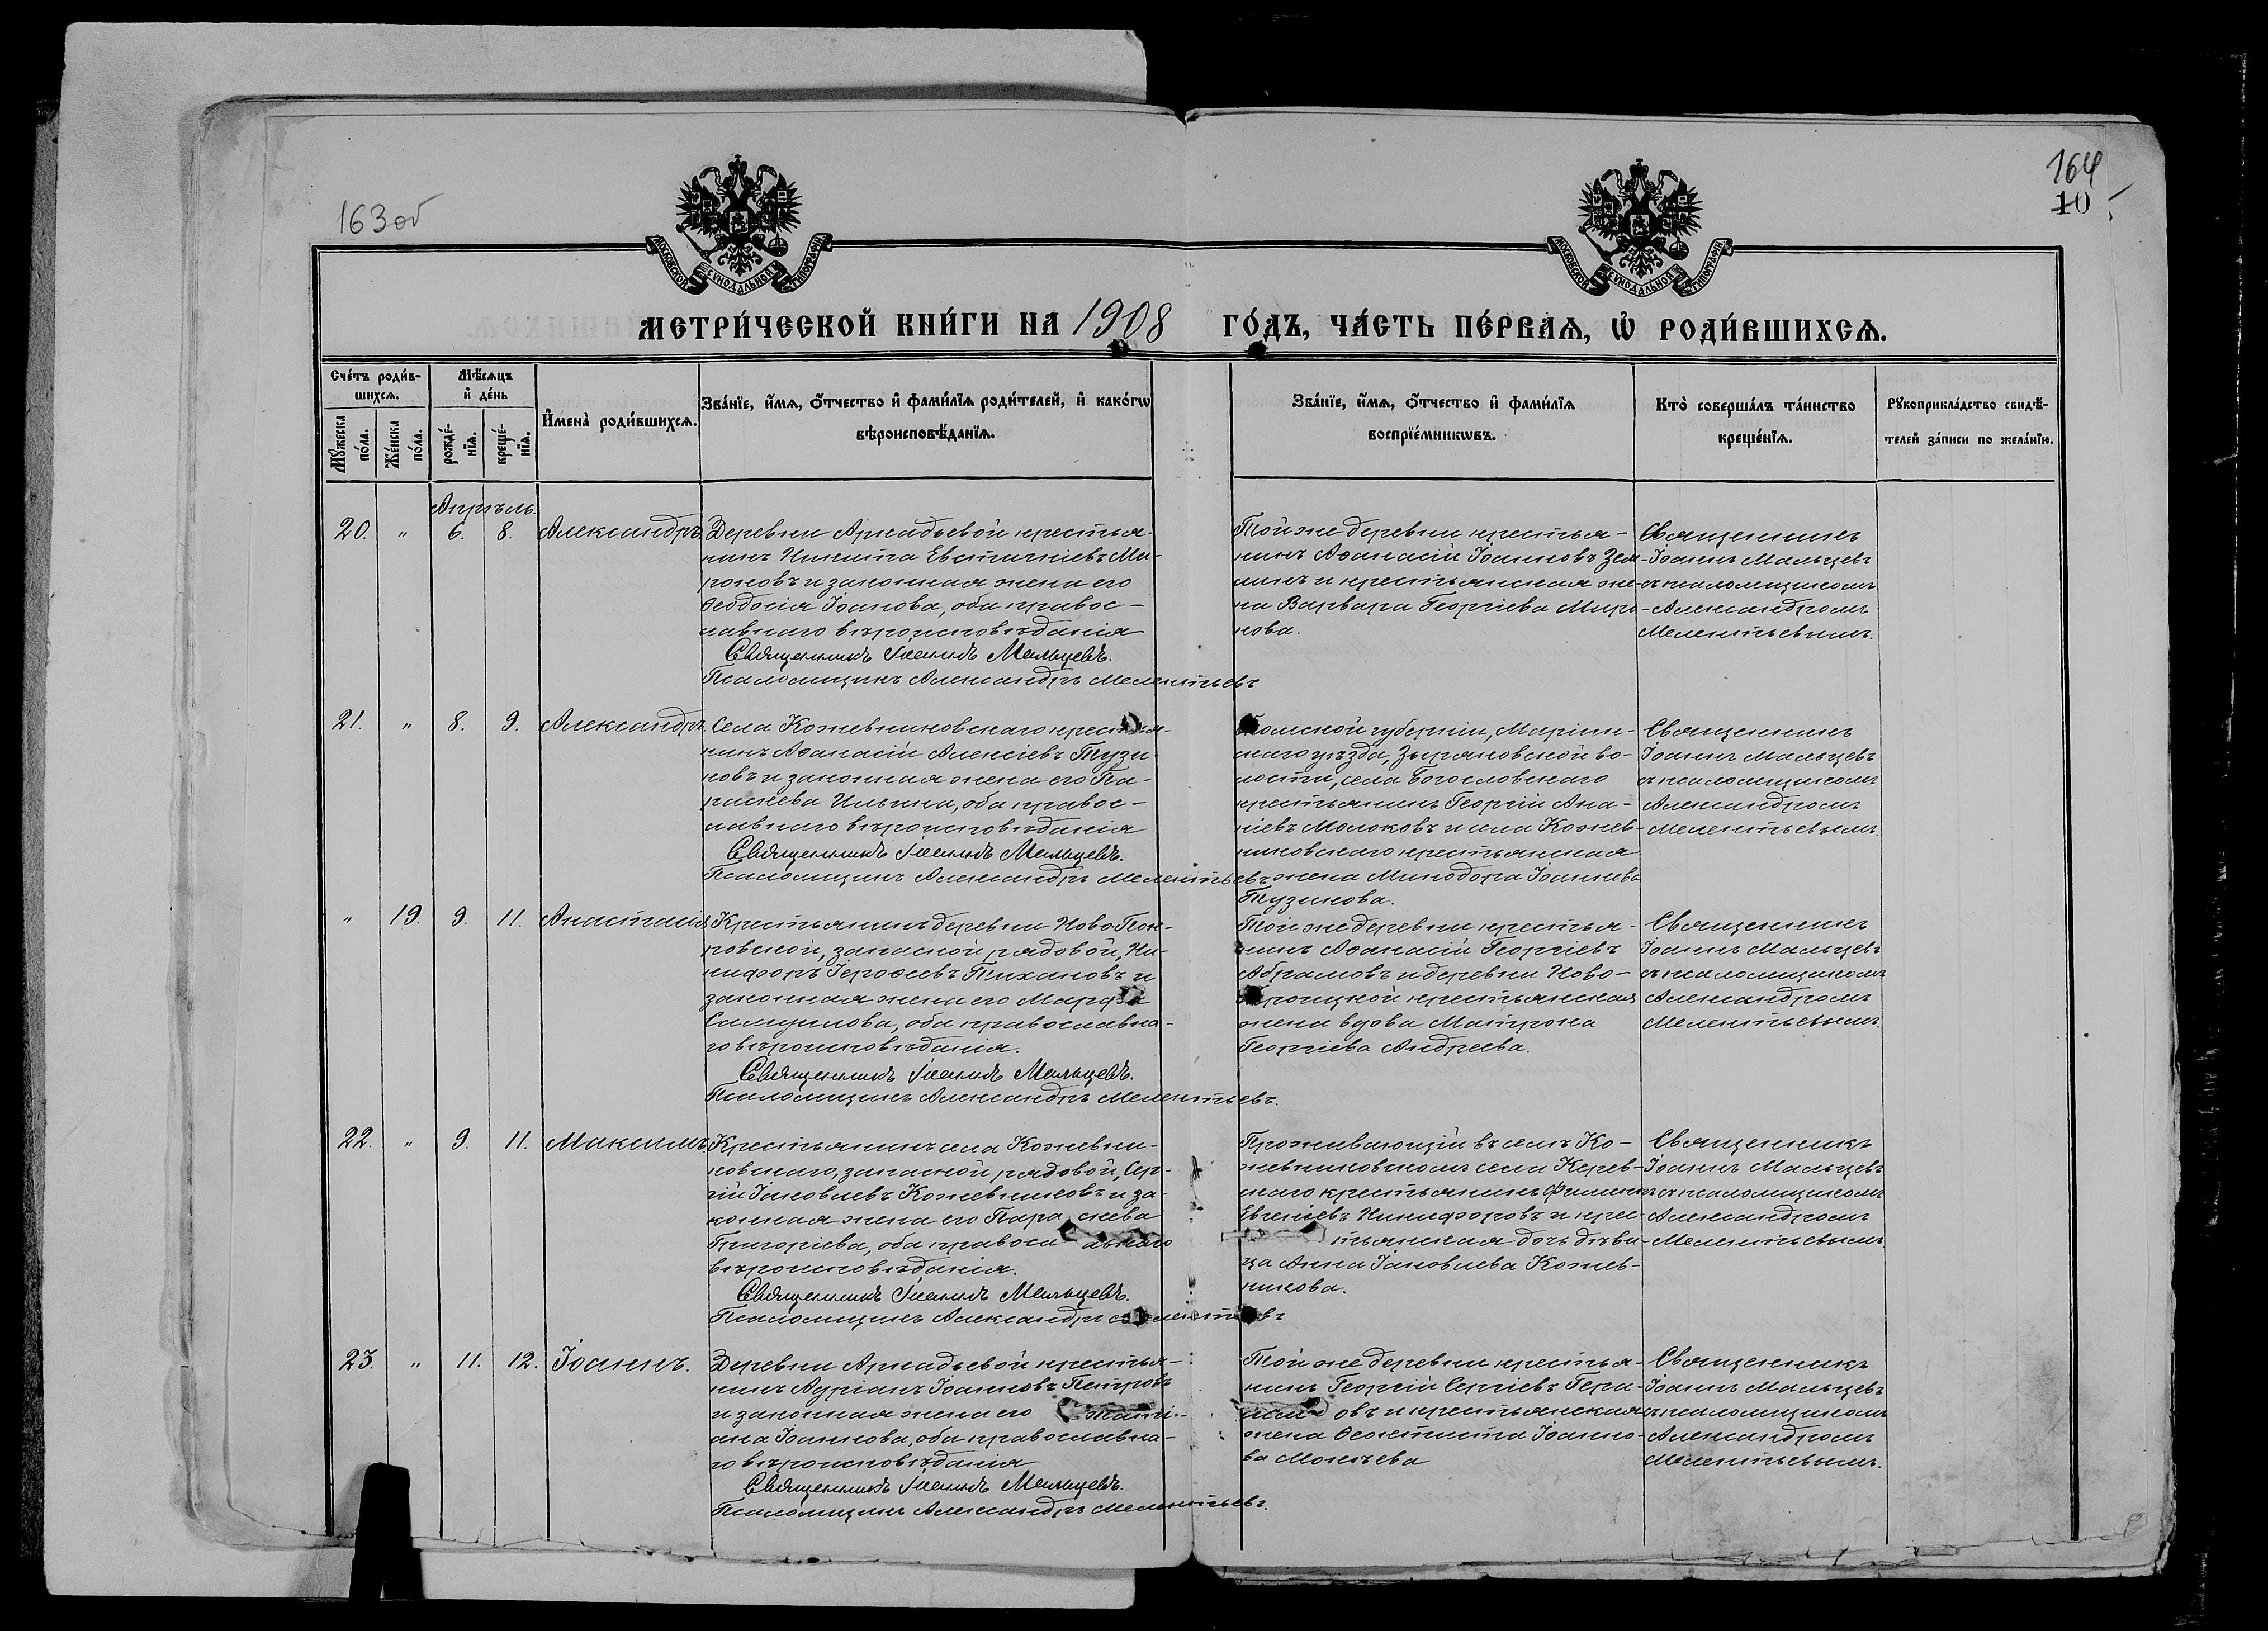 163 об
164
10
МОСКОВСКОЙ СѴНОДАЛЬНОЙ ТИПОГРАФІИ
МОСКОВСКОЙ СѴНОДАЛЬНОЙ ТИПОГРАФІИ
МЕТРИ́ЧЕСКОЙ КНИ́ГИ НА 1908 ГО́ДЪ, ЧА́СТЬ ПЕ́РВАѦ, Ѡ҆ РОДИ́ВШИХСѦ.
Сче́тъ роди́в-
шихсѧ.
Мꙋ́жеска
по́ла.
Же́нска
по́ла.
Мѣ́сѧцъ
и҆ де́нь
рожде́-
нїѧ.
креще́-
нїѧ.
И҆мена̀ роди́вшихсѧ.
Зва́нїе, и҆́мѧ, ѻ҆́тчество и҆ фами́лїѧ роди́телей, и҆ како́гѡ
вѣроисповѣ́данїѧ.
Зва́нїе, и҆́мѧ, ѻ҆́тчество и҆ фами́лїѧ
воспрїе́мникѡвъ.
Кто̀ соверша́лъ та́инство
креще́нїѧ.
Рꙋкоприкла́дство свидѣ́-
телей за́писи по жела́нїю.
Апрѣль.
20. " 6. 8. Александръ
Деревни Аркадьевой крестья-
нинъ Никита Евстигніевъ Ми-
роновъ и законная жена его
Ѳеодосія Іоанова, оба правос-
лавнаго вѣроисповѣданія
Священникъ Іоаннъ Мальцевъ.
Псаломщикъ Александръ Мелентьевъ
Той же деревни крестья-
нинъ Аѳанасій Іоанновъ Зем-
цинъ и крестьянская же-
на Варвара Георгіева Миро-
нова.
Священникъ
Іоаннъ Мальцевъ
съ псаломщикомъ
Александромъ
Мелентьевымъ.
21. " 8. 9. Александръ
Села Кожевниковскаго крестья-
нинъ Аѳанасій Алексіевъ Тузи
ковъ и законная жена его Па-
раскева Ильина, оба правос-
лавнаго вѣроисповѣданія
Священникъ Іоаннъ Мальцевъ.
Псаломщикъ Александръ Мелентьевъ
Томской губерніи, Маріин-
скаго уѣзда, Зыряновской во-
лости, села Богословскаго
крестьянинъ Георгій Ана-
ніевъ Молоковъ и села Кожев-
никовскаго крестьянская
жена Минодора Іоаннова
Тузикова.
Священникъ
Іоаннъ Мальцевъ
съ псаломщикомъ
Александромъ
Мелентьевымъ.
" 19. 9. 11. Анастасія
Крестьянинъ деревни Ново-Пок-
ровской, запасной рядовой, Ни-
кифоръ Іероѳеевъ Тихановъ и
законная жена его Марфа
Самуилова, оба православна-
го вѣроисповѣданія.
Священникъ Іоаннъ Мальцевъ.
Псаломщикъ Александръ Мелентьевъ.
Той же деревни крестья-
нинъ Аѳанасій Георгіевъ
Абрамовъ и деревни Ново-
троицкой крестьянская
жена вдова Матрона
Георгіева Андреева.
Священникъ
Іоаннъ Мальцевъ
съ псаломщикомъ
Александромъ
Мелентьевымъ.
22. " 9. 11. Максимъ
Крестьянинъ села Кожевни-
ковскаго, запасной рядовой, Сер-
гій Іаковлевъ Кожевниковъ и за-
конная жена его Параскева
Григоріева, оба православнаго
вѣроисповѣданія.
Священникъ Іоаннъ Мальцевъ.
Псаломщикъ Александръ Мелентьевъ
Проживающій въ селѣ Ко-
жевниковскомъ села Керев-
скаго крестьянинъ Филиппъ
Евгеніевъ Никифоровъ и крес-
тьянская дочь дѣви-
ца Анна Іаковлева Кожев-
никова.
Священникъ
Іоаннъ Мальцевъ
съ псаломщикомъ
Александромъ
Мелентьевымъ
23. " 11. 12. Іоаннъ.
Деревни Аркадьевой крестья-
нинъ Адріанъ Іоанновъ Петровъ
и законная жена его Тати-
ана Іоаннова, оба православна-
го вѣроисповѣданія
Священникъ Іоаннъ Мальцевъ.
Псаломщикъ Александръ Мелентьевъ.
Той же деревни крестья-
нинъ Георгій Сергіевъ Гера-
симовъ и крестьянская
жена Ѳеоктиста Іоанно-
ва
Священникъ
Іоаннъ Мальцевъ
съ псаломщикомъ
Александромъ
Мелентьевымъ.